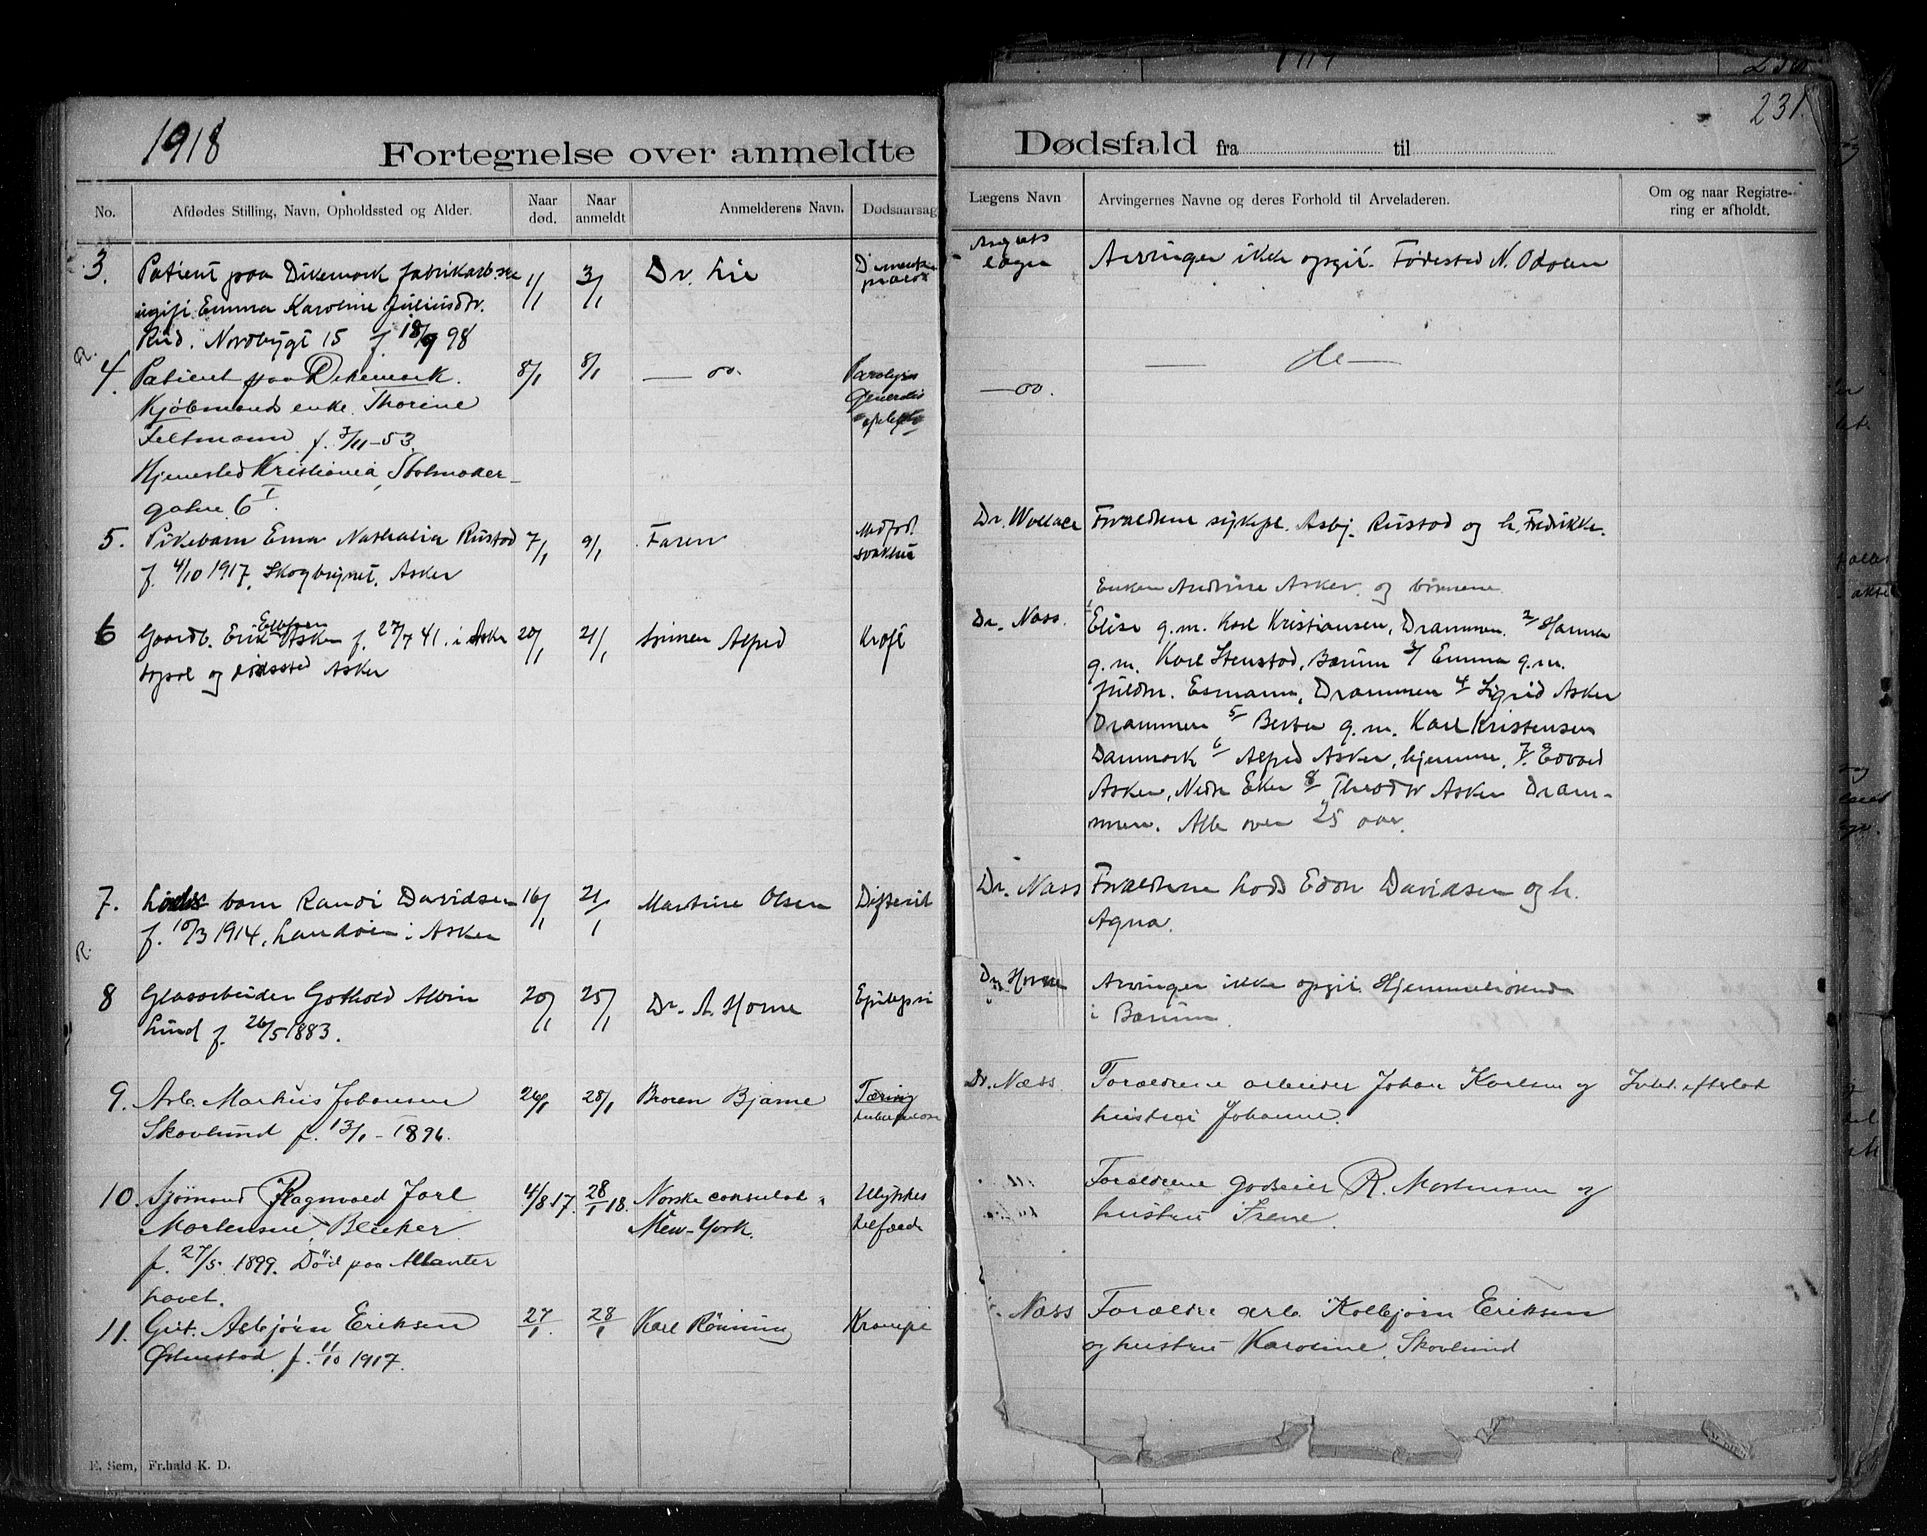 1918
Fortegnelse over anmeldte
No.
Afdødes Stilling, Navn, Opholdssted og Alder.
Naar død.
Naar anmeldt
Anmelderens Navn.
Dødsaarsag
3.
Patient paa Dikemark fabrikarb.ske
ugift Emma Karoline Juliusdtr.
Rud. Nordbygt 15 f. 18/9 98
1/1
3/1
Dr. Lie
R.
4.
Patient paa Dikemark.
Kjøbmands enke Thorine
Feltmann f. 3/11-53
Hjemsted Kristiania, Stolmaker-
gaten 6 I.
8/1
8/1
— oo.
Paralysis
Generalis
5.
Pikebarn Erna Nathalia Rustad
f. 4/10 1917. Skogbrynet. Asker
7/1
9/1
Faren
Medfød.
svakhet
6
Gaardb. Erik Ellefsen Asker f. 27/7 41. i Asker
bopæl og dødssted Asker
20/1
21/1
Sønnen Alfred
Kræft
7.
Lods barn Randi Davidsen
f. 10/3 1914, Landøen i Asker
16/1
21/1
Martine Olsen
Difterit
R.
8
Glasarbeider Gothold Albin
Lund f. 26/5 1883.
20/1
25/1
Dr. A. Horne
Epilepsi
9.
Arb. Markus Johansen
Skovlund f. 13/1 - 1896.
26/1
28/1
Broren Bjarne
Tæring
tuberkulose
10.
Sjømand Ragnvald Jarl
Mortensen, Bleiker
f. 27/5. 1899. Död paa Atlanter
havet.
4/8 17.
28/1 18.
Norske consulat i
New-York.
Ulykkes
tilfælde
11.
Gut. Asbjørn Eriksen
Østenstad. f. 11/10 1917.
27/1.
28/1
Karl Rønning
Krampe
E. Sem, Fr.hald K. D.
231.
Dødsfald fra til
Lægens Navn
Arvingernes Navne og deres Forhold til Arveladeren.
Om og naar Registre-
ring er afholdt.
læge
Arvinger ikke opgit. Fødested N. Odalen
— oo.
— do —
Dr. Wollace
Forældrene sykepl. Asbj. Rustad og h. Fredrikke.
Enken Andrine Asker og børnene
Dr. Næss.
1/ Elise g.m. Karl Kristiansen, Drammen. 2/ Hanna
g.m. Karl Stenstad, Bærum 3/ Emma g.m.
Guldm. Esmann, Drammen 4/ Sigrid Asker
Drammen 5/ Berta g.m. Karl Kristensen
Danmark 6/ Alfred Asker, hjemme, 7/ Edvard
Asker, Nedre Eker 8/ Theodor Asker Dram-
men. Alle over 25 aar.
Dr. Næss
Forældrene Lods Edon Davidsen og h.
Agna.
Dr. Horne
Arvinger ikke opgit. Hjemmehørende
i Bærum
Dr. Næss.
Forældrene arbeider Johan Karlsen og
hustru Johanne.
Intet efterlat
Forældrene godseier R. Mortensen og
hustru Irene.
Næss
Forældre arb. Kolbjørn Eriksen
og hustru Karoline. Skovlund